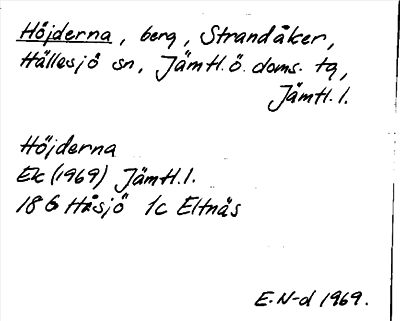 Höjderna, berg, Strandåker,
Hällesjö sn, Jämtl.ö. doms. tg,
Jämtl. l.
Höjderna
Ek (1969) Jämtl. l.
18 G Håsjö 1c Eltnäs
E. N-d 1969.